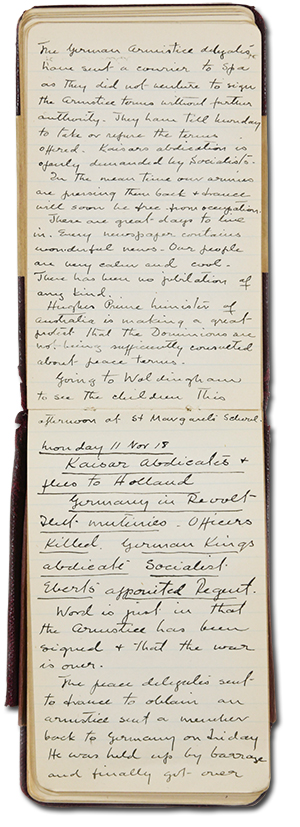 The German Armistice delegates
have sent a courier to Spa
as they did not venture to sign
the Armistice terms without further
authority. They have till Monday
to take or refuse the terms
offered. Kaisers abdication is
openly demanded by Socialists.
In the mean time our armies
are pressing them back & France
will soon be free from occupation.
These are great days to live
in. Every newspaper contains
wonderful news. Our people
are very calm and cool.
There has been no jubilation of
any kind.
Hughes Prime Minister of
Australia is making a great
protest that the Dominions are
not being sufficiently consulted
about peace terms.
Going to Woldingham
to see the children this
afternoon at St Margarets School.
Monday 11 Nov 18
Kaisar Abdicates &
flees to Holland
Germany in Revolt
Fleet mutinies. Officers
Killed. German Kings
abdicate Socialist
Ebert appointed Regent.
Word is just in that
the Armistice has been
signed & that the war
is over.
The peace delegates sent
to France to obtain an
armistice sent a member
back to Germany on Friday
He was held up by barrage
and finally got over